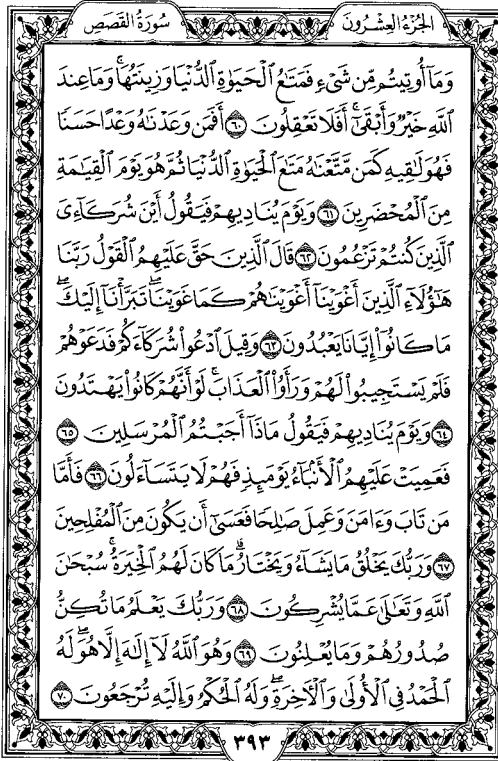 الجزء العشرون
سورة القصص
وَمَآ أُوتِيتُم مِّن شَىْءٍ فَمَتَٰعُ ٱلْحَيَوٰةِ ٱلدُّنْيَا وَزِينَتُهَا ۚ وَمَا عِندَ
ٱللَّهِ خَيْرٌ وَأَبْقَىٰٓ ۚ أَفَلَا تَعْقِلُونَ ٦٠ أَفَمَن وَعَدْنَٰهُ وَعْدًا حَسَنًا
فَهُوَ لَٰقِيهِ كَمَن مَّتَّعْنَٰهُ مَتَٰعَ ٱلْحَيَوٰةِ ٱلدُّنْيَا ثُمَّ هُوَ يَوْمَ ٱلْقِيَٰمَةِ
مِنَ ٱلْمُحْضَرِينَ ٦١ وَيَوْمَ يُنَادِيهِمْ فَيَقُولُ أَيْنَ شُرَكَآءِىَ
ٱلَّذِينَ كُنتُمْ تَزْعُمُونَ ٦٢ قَالَ ٱلَّذِينَ حَقَّ عَلَيْهِمُ ٱلْقَوْلُ رَبَّنَا
هَٰٓؤُلَآءِ ٱلَّذِينَ أَغْوَيْنَآ أَغْوَيْنَٰهُمْ كَمَا غَوَيْنَا ۖ تَبَرَّأْنَآ إِلَيْكَ ۖ
مَا كَانُوٓا۟ إِيَّانَا يَعْبُدُونَ ٦٣ وَقِيلَ ٱدْعُوا۟ شُرَكَآءَكُمْ فَدَعَوْهُمْ
فَلَمْ يَسْتَجِيبُوا۟ لَهُمْ وَرَأَوُا۟ ٱلْعَذَابَ ۚ لَوْ أَنَّهُمْ كَانُوا۟ يَهْتَدُونَ
٦٤ وَيَوْمَ يُنَادِيهِمْ فَيَقُولُ مَاذَآ أَجَبْتُمُ ٱلْمُرْسَلِينَ ٦٥
فَعَمِيَتْ عَلَيْهِمُ ٱلْأَنۢبَآءُ يَوْمَئِذٍ فَهُمْ لَا يَتَسَآءَلُونَ ٦٦ فَأَمَّا
مَن تَابَ وَءَامَنَ وَعَمِلَ صَٰلِحًا فَعَسَىٰٓ أَن يَكُونَ مِنَ ٱلْمُفْلِحِينَ
٦٧ وَرَبُّكَ يَخْلُقُ مَا يَشَآءُ وَيَخْتَارُ ۗ مَا كَانَ لَهُمُ ٱلْخِيَرَةُ ۚ سُبْحَٰنَ
ٱللَّهِ وَتَعَٰلَىٰ عَمَّا يُشْرِكُونَ ٦٨ وَرَبُّكَ يَعْلَمُ مَا تُكِنُّ
صُدُورُهُمْ وَمَا يُعْلِنُونَ ٦٩ وَهُوَ ٱللَّهُ لَآ إِلَٰهَ إِلَّا هُوَ ۖ لَهُ
ٱلْحَمْدُ فِى ٱلْأُولَىٰ وَٱلْءَاخِرَةِ ۖ وَلَهُ ٱلْحُكْمُ وَإِلَيْهِ تُرْجَعُونَ ٧٠
٣٩٣